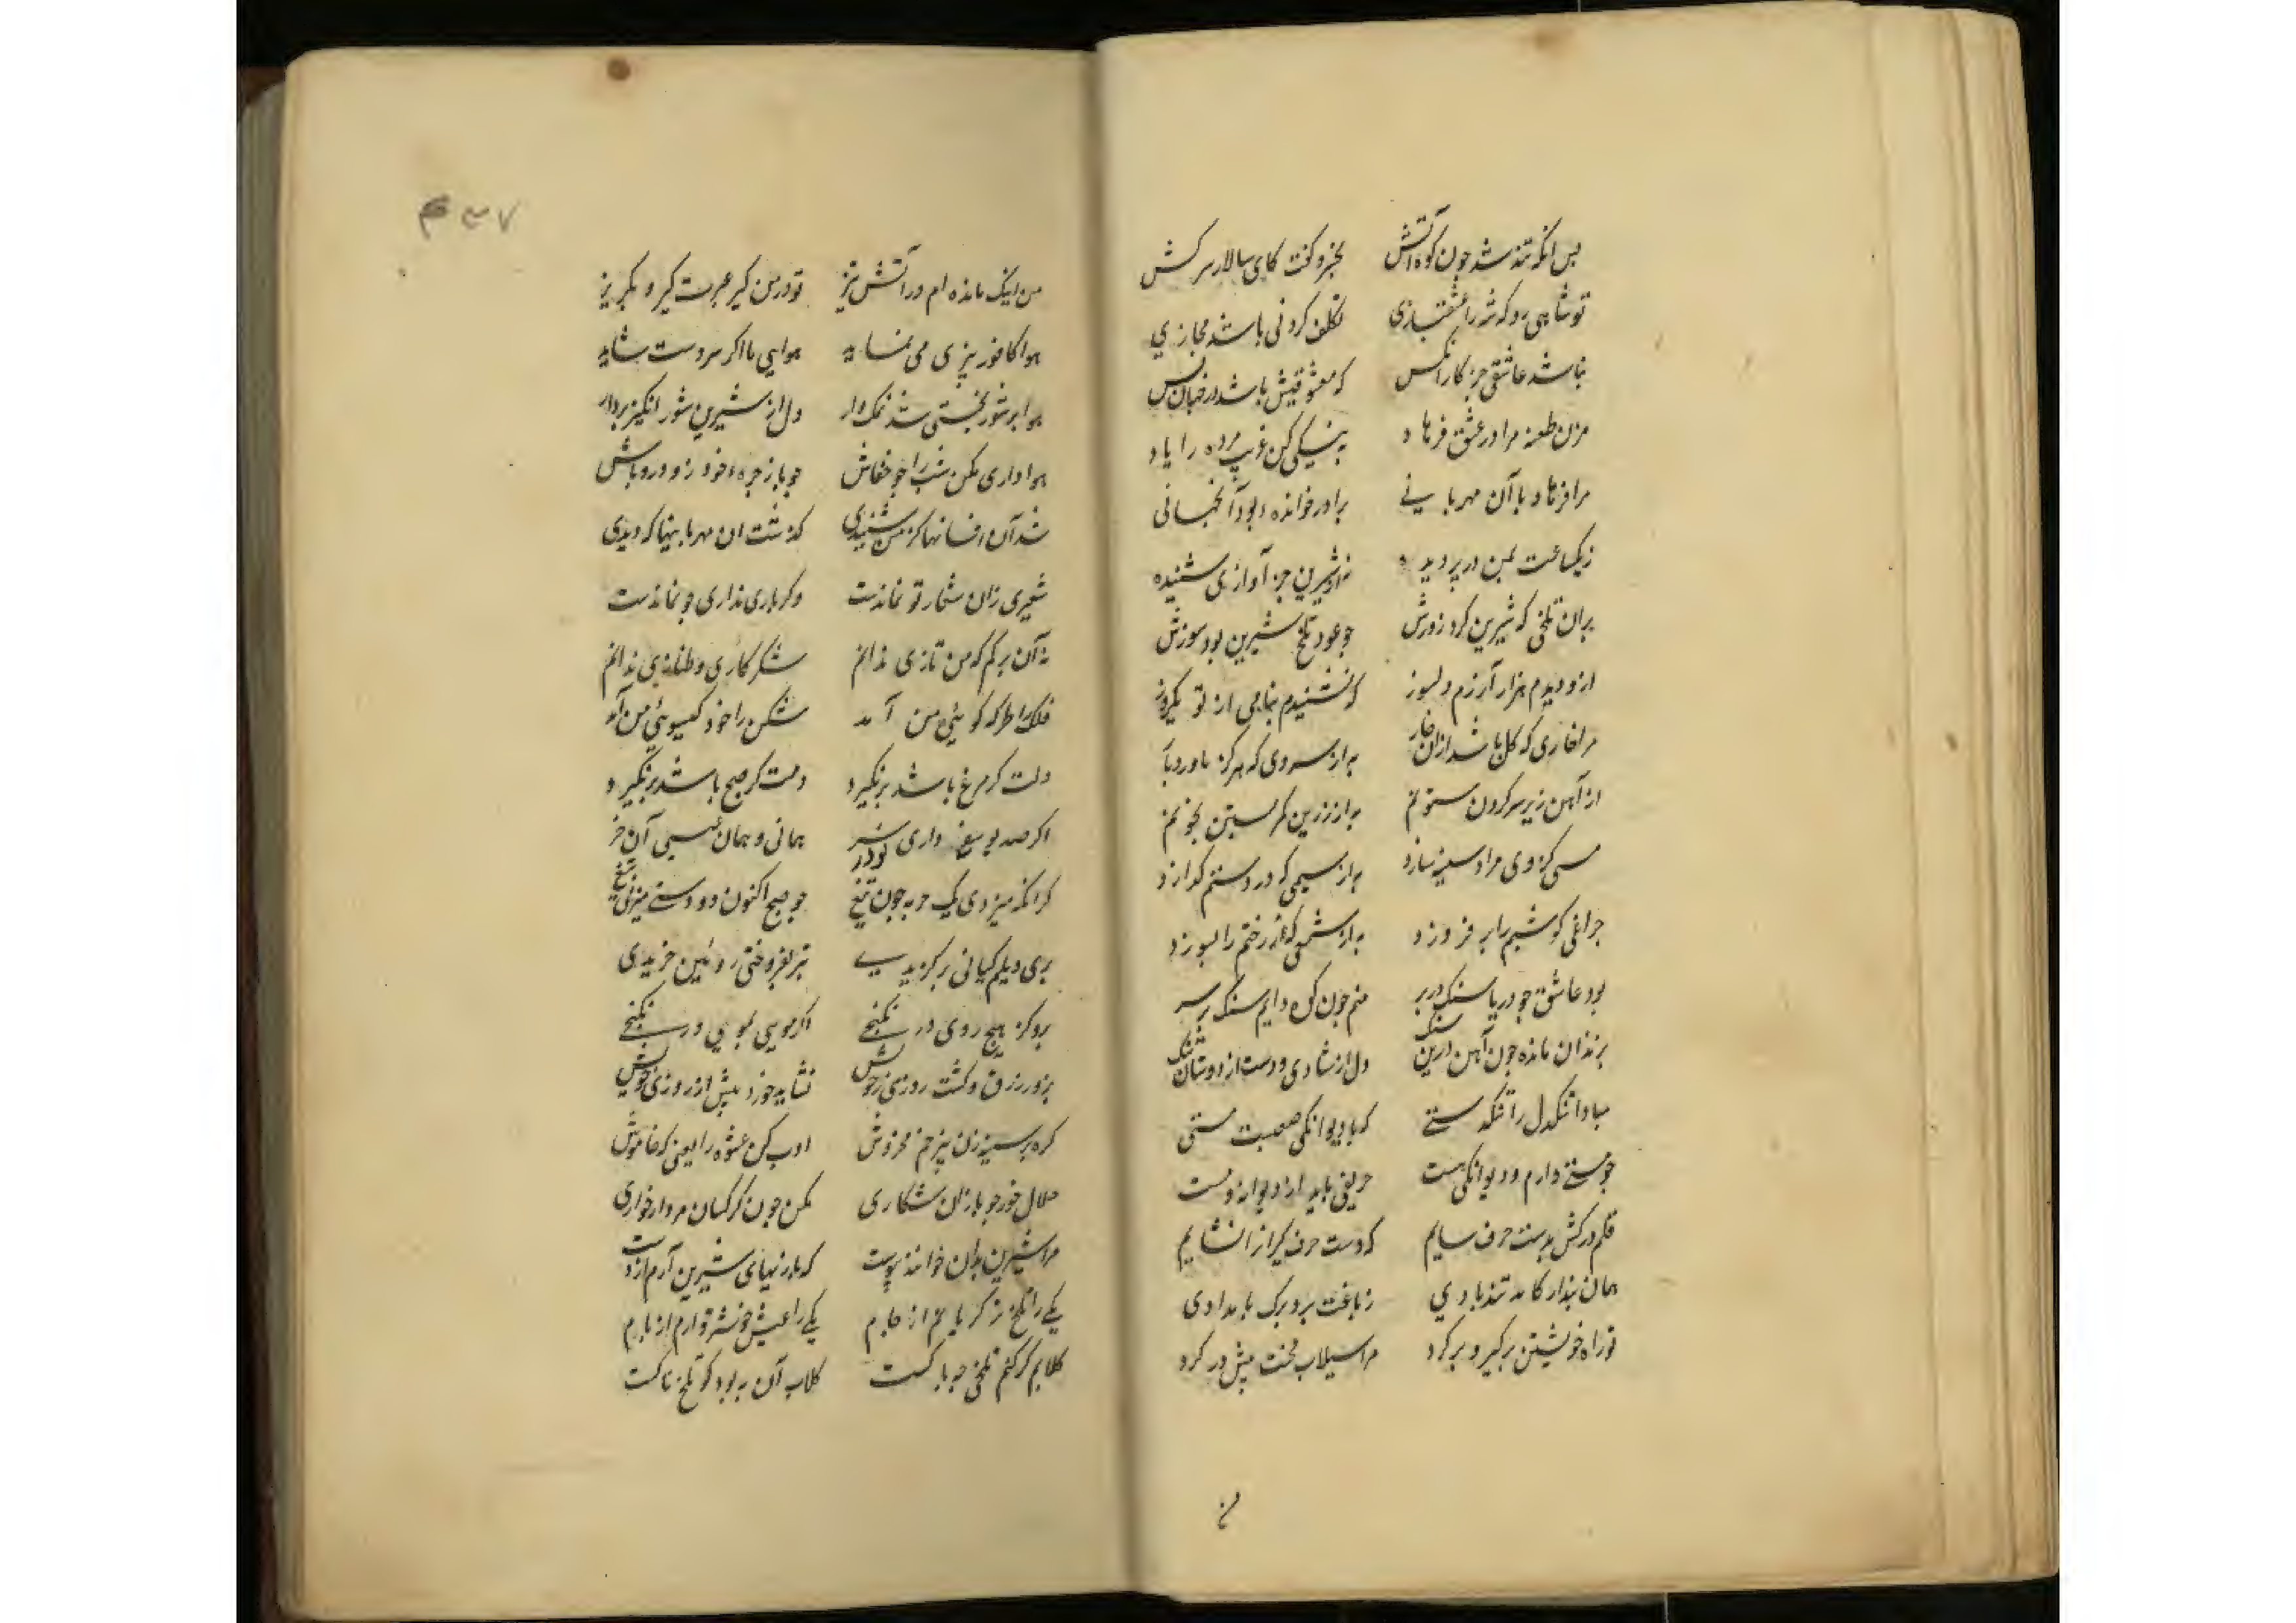 پس انکه تند شد چون کوه آتش بخسرو گفت کای سالار سرکش
تو شاهی رو که شه را عشقبازی تکلف کردنی باشد مجازی
نباشد عاشقی جز کار آنکس که معشوقیش باشد در جهان بس
مزن طعنه مرا در عشق فرهاد به نیکی کن غریب مرده را یاد
مرا فرهاد با آن مهربانی برادر خوانده بود آنجهانی
نه یکساعت بمن در پر دیده نه از شیرین جز آوازی شنیده
بدان تلخی که شیرین کرد زورش چو عود تلخ شیرین بود سوزش
ازو دیدم هزار آزرم دلسوز که نشنیدم پیامی از تو یکروز
مرا خاری که گل باشد ازان خار به از سروی که هرگز ناورد بار
از آهن زیر سر کردن ستونم به از زرین کمر بستن بخونم
مسی کز وی مرا دستینه سازد به از سیمی که در دستم گدازد
چراغی کو شبم را بر فروزد به از شمعی که رختم را بسوزد
بود عاشق چو دریا سنک در بر منم چون کوه دایم سنک بر سر
بزندان مانده چون آهن درین سنک دل از شادی و دست از دوستان تنک
مبادا تنکدل را تنکدستی که با دیوانکی صعبست مستی
چو مستی دارم و دیوانکی هست حریفی ناید از دیوانه و مست
قلم در کش بدست حرف سایم که دست حرف گیران را نشایم
همان پندار کامد تندبادی ز باغت برد برک بامدادی
تو راه خویشتن برگیر و برگرد مرا سیلاب محنت پیش در کرد
۴۳۷
من اینک مانده ام در آتش تیز تو در من گیر عبرت گیر و بگریز
هوا کافور بیزی می نماید هوایی ما اکر سردست شاید
هوا بر شور بختی شد نمک دار دل از شیرین شور انگیز بردار
هواداری مکن شب را چو خفاش چو باز جره خود روز در و باش
شد آن افسانها کز من شنیدی گذشت ان مهربانیها که دیدی
شعیری زان شعار تو نماندست وگر باری نداری جو نماندست
نه آن ترکم که من تازی ندانم شکرکاری و طنازی ندانم
فلک را طره کو پی من آمد شکن را خود گیسوی من آمد
دلت کر مرغ باشد بر نگیرد دمت کر صبح باشد در نگیرد
اکر صد یوسف داری نو در همانی و همان عیسی آن خر
گر انگه میزدی یک حربه چون تیغ چو صبح اکنون دو دستی میزنی تیغ
بدی دیلم کیانی بر گزیدی تبر بفروختی زوبین خریدی
برو کز هیچ روی در نکنجی اگر مویی بمویی در نکنجی
بزور و زرق کشت روزی خویش نشاید خورد بیش از روزی خویش
گره بر سینه زن بی رنج مخروش ادب کن عشوه را یعنی که خاموش
حلال خور چو بازان شکاری مکن چون کرکسان مردارخواری
مرا شیرین بدان خوانند پیوست که بازیهای شیرین آرم از دست
یکی را تلخ تر گریانم از جام یکی را عیش خوشتر دارم از نام
گلابم گر کنم تلخی چه باکست گلاب آن به بود کو تلخ ناکست